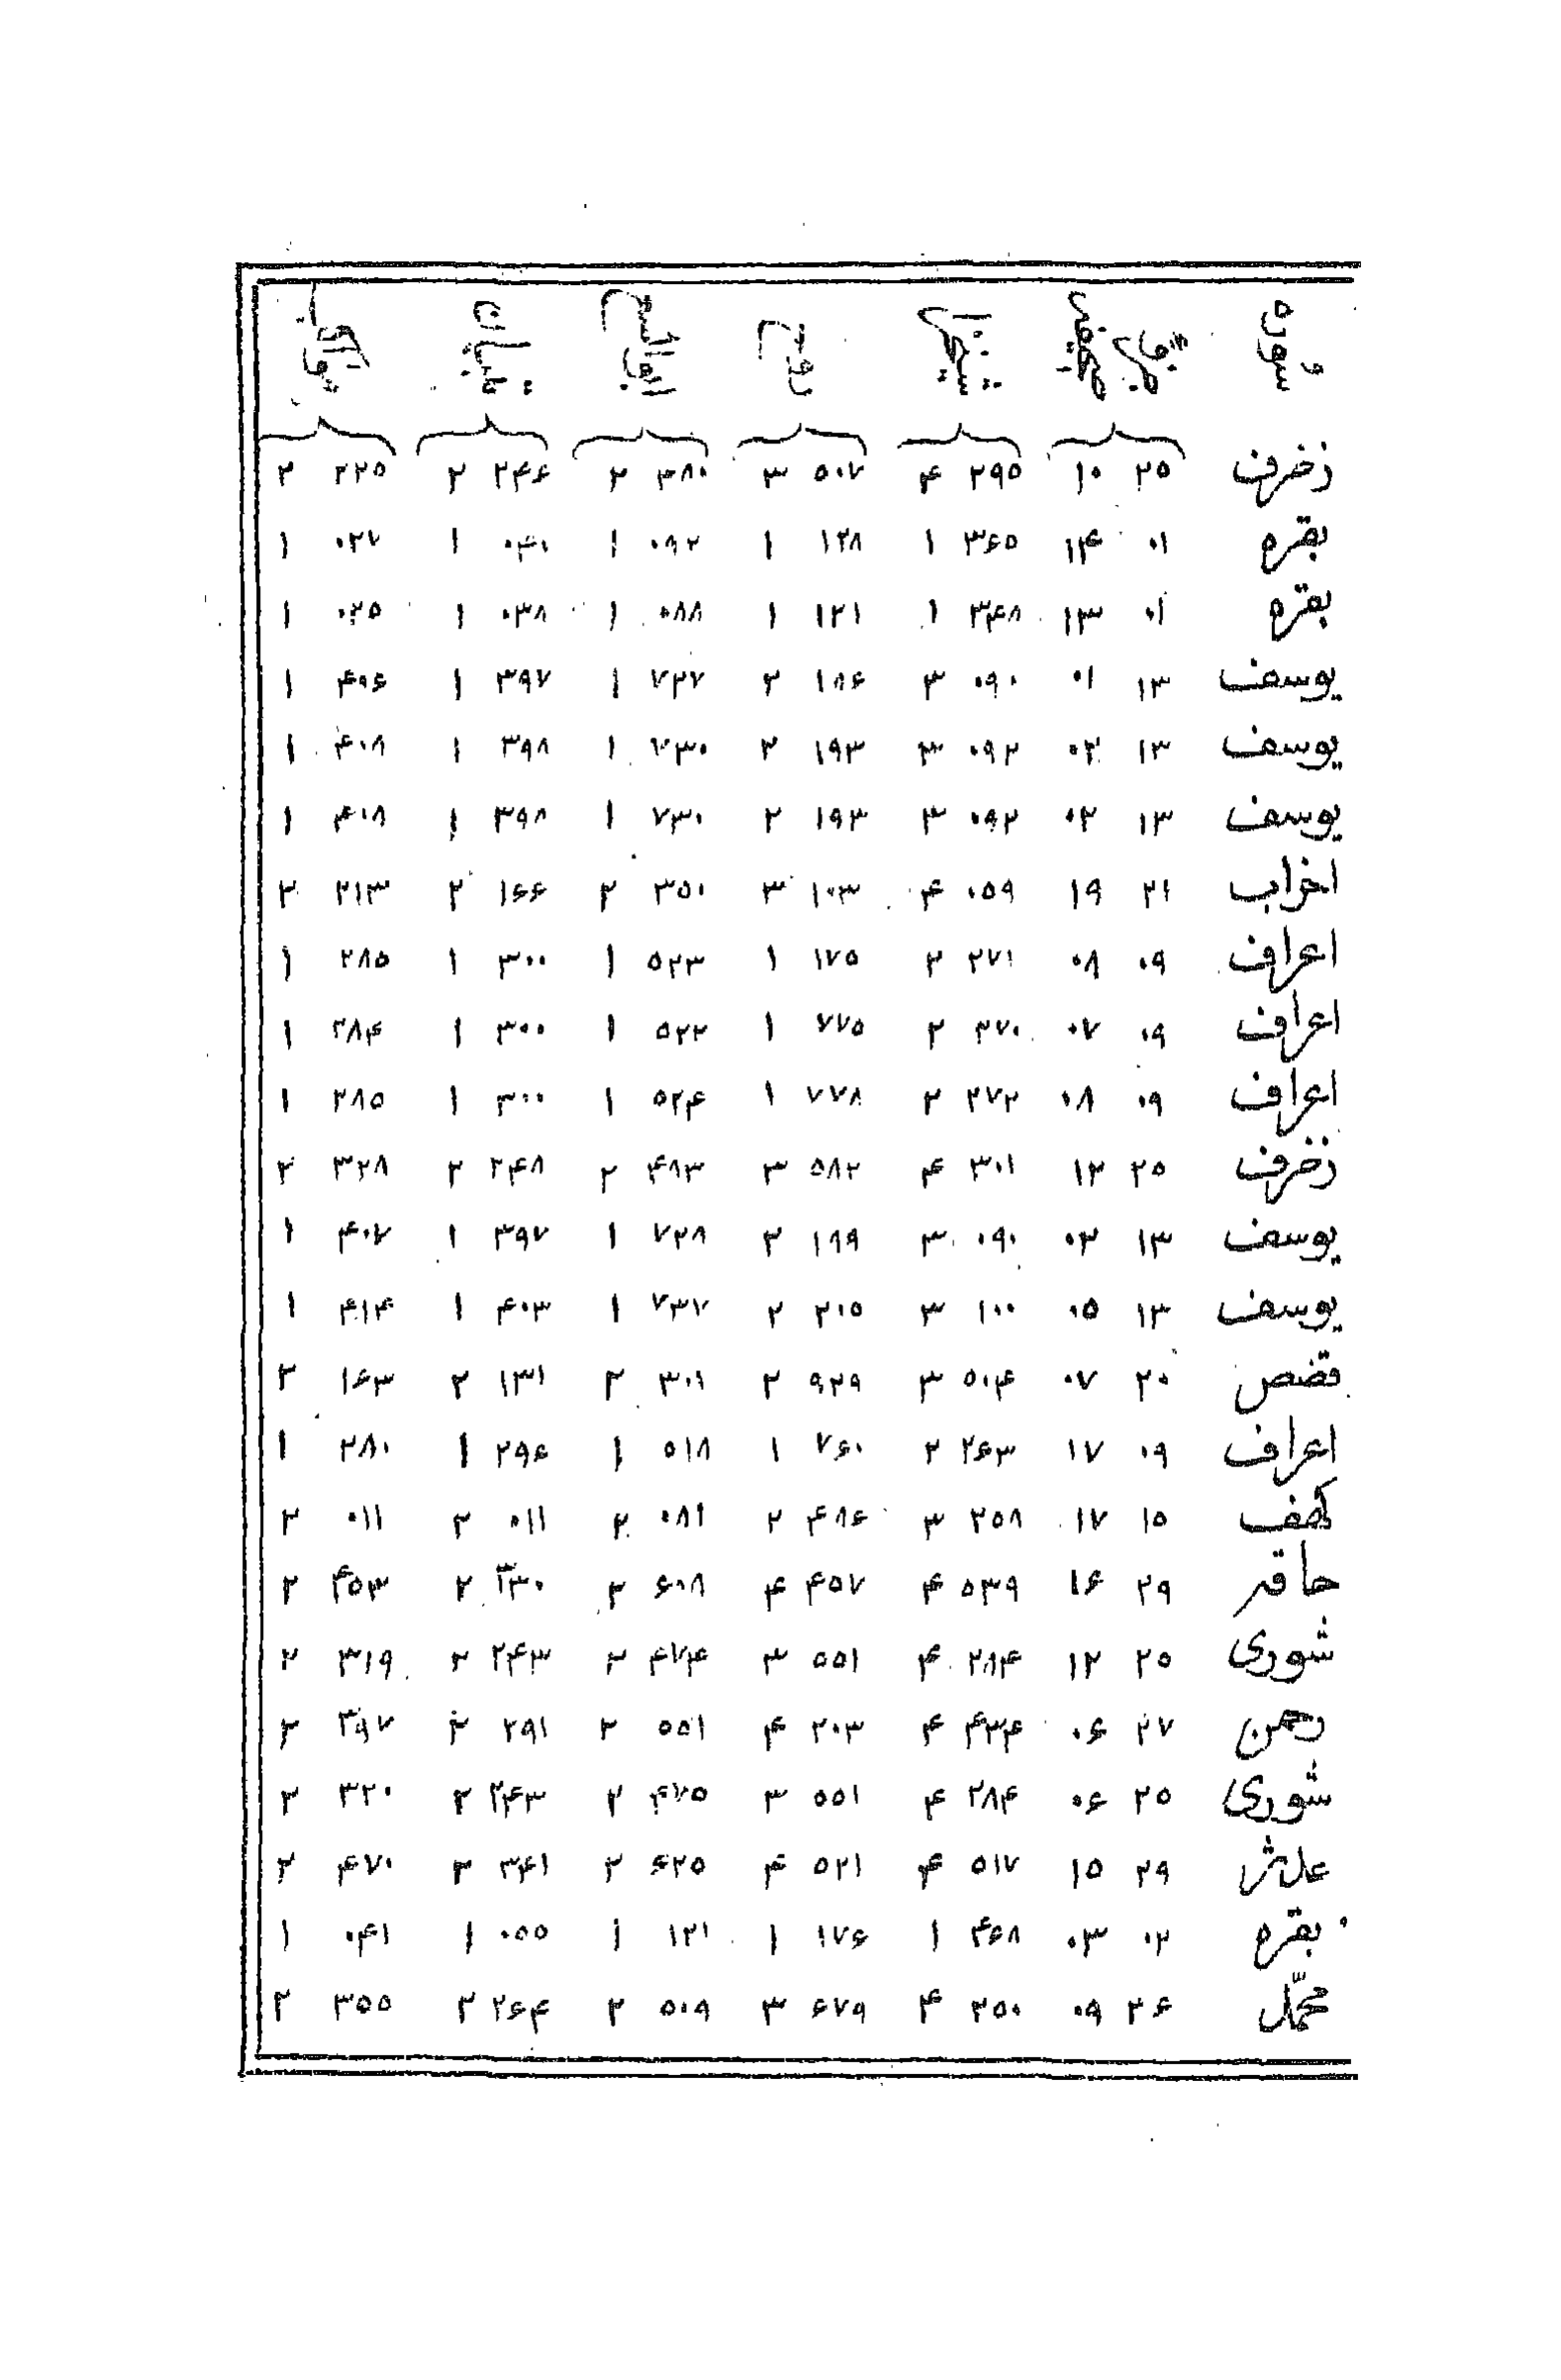 سوره
ذخرف ۲۵ ۱۰ ۲۹۵ ۴ ۵۰۷ ۳ ۳۸۰ ۲ ۲۴۶ ۲ ۲۲۵ ۲
بقره ۰۱ ۱۴ ۳۶۵ ۱ ۱۲۸ ۱ ۰۹۲ ۱ ۰۴۰ ۱ ۰۲۷ ۱
بقره ۰۱ ۱۳ ۳۴۸ ۱ ۱۲۱ ۱ ۰۸۸ ۱ ۰۳۸ ۱ ۰۲۵ ۱
یوسف ۱۳ ۰۱ ۰۹۰ ۳ ۱۸۶ ۲ ۷۲۷ ۱ ۳۹۷ ۱ ۴۰۶ ۱
یوسف ۱۳ ۰۲ ۰۹۲ ۳ ۱۹۳ ۲ ۷۳۰ ۱ ۳۹۸ ۱ ۴۰۸ ۱
یوسف ۱۳ ۰۲ ۰۹۲ ۳ ۱۹۳ ۲ ۷۳۰ ۱ ۳۹۸ ۱ ۴۰۸ ۱
اخراب ۲۱ ۱۹ ۰۵۹ ۴ ۱۰۳ ۳ ۳۵۰ ۲ ۱۶۶ ۲ ۲۱۳ ۲
اعراف ۰۹ ۰۸ ۲۷۱ ۲ ۱۷۵ ۱ ۵۲۳ ۱ ۳۰۰ ۱ ۲۸۵ ۱
اعراف ۰۹ ۰۷ ۲۷۰ ۲ ۷۷۵ ۱ ۵۲۲ ۱ ۳۰۰ ۱ ۲۸۴ ۱
اعراف ۰۹ ۰۸ ۲۷۲ ۲ ۷۷۸ ۱ ۵۲۴ ۱ ۳۰۰ ۱ ۲۸۵ ۱
ذخرف ۲۵ ۱۲ ۳۰۱ ۴ ۵۸۲ ۳ ۴۸۳ ۲ ۲۴۸ ۲ ۳۲۸ ۲
یوسف ۱۳ ۰۲ ۰۹۰ ۳ ۱۸۹ ۲ ۷۲۸ ۱ ۳۹۷ ۱ ۴۰۷ ۱
یوسف ۱۳ ۰۵ ۱۰۰ ۳ ۲۱۵ ۲ ۷۳۷ ۱ ۴۰۳ ۱ ۴۱۴ ۱
قضص ۲۰ ۰۷ ۵۰۴ ۳ ۹۲۹ ۲ ۳۰۱ ۲ ۱۳۱ ۲ ۱۶۳ ۲
اعراف ۰۹ ۱۷ ۲۶۳ ۲ ۷۶۰ ۱ ۵۱۸ ۱ ۲۹۶ ۱ ۲۸۰ ۱
کهف ۱۵ ۱۷ ۲۵۸ ۳ ۴۸۶ ۲ ۰۸۱ ۲ ۰۱۱ ۲ ۰۱۱ ۲
حاقه ۲۹ ۱۶ ۵۳۹ ۴ ۴۵۷ ۴ ۶۰۸ ۲ ۳۳۰ ۲ ۴۵۳ ۲
شوری ۲۵ ۱۲ ۲۸۴ ۴ ۵۵۱ ۳ ۴۷۴ ۲ ۲۴۳ ۲ ۳۱۹ ۲
رحمن ۲۷ ۰۶ ۴۳۴ ۴ ۲۰۳ ۴ ۵۵۱ ۲ ۲۹۱ ۲ ۳۹۷ ۲
شوری ۲۵ ۰۶ ۲۸۴ ۴ ۵۵۱ ۳ ۴۷۵ ۲ ۲۴۳ ۲ ۳۲۰ ۲
۲۹ ۱۵ ۵۱۷ ۴ ۵۲۱ ۴ ۶۲۵ ۲ ۳۴۱ ۲ ۴۷۰ ۲
بقره ۰۲ ۰۳ ۴۶۸ ۱ ۱۷۶ ۱ ۱۲۱ ۱ ۰۵۵ ۱ ۰۴۱ ۱
محمّل ۲۶ ۰۹ ۲۵۰ ۴ ۶۷۹ ۳ ۵۰۹ ۲ ۲۶۴ ۲ ۳۵۵ ۲